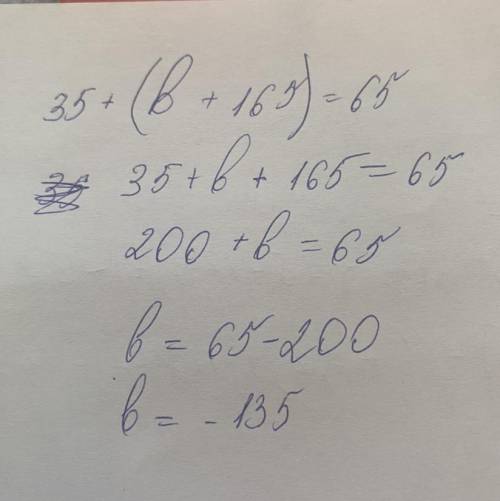 35 + (b + 165) = 65
35 + b + 165 = 65
200 + b = 65
b = 65 - 200
b = - 135